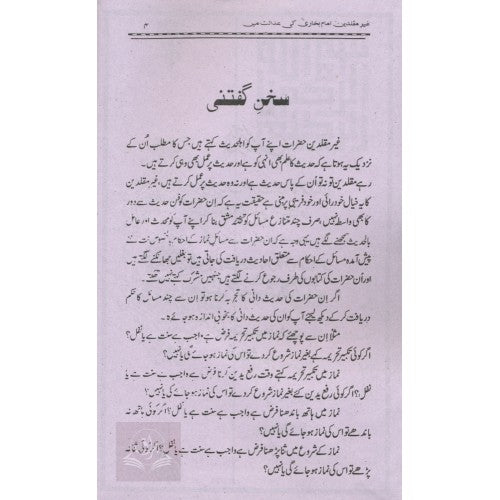 غیر مقلدین امام بخاری کی عدالت میں
۴
سخن گفتنی
غیر مقلدین حضرات اپنے آپ کو اہلحدیث کہتے ہیں جس کا مطلب اُن کے
نزدیک یہ ہوتا ہے کہ حدیث کا علم بھی انہی کو ہے اور حدیث پر عمل بھی وہی کرتے ہیں۔
رہے مقلدین تو نہ تو اُن کے پاس حدیث ہے اور نہ وہ حدیث پر عمل کرتے ہیں، غیر مقلدین
کا یہ خیال خودرائی اور خود فریبی پر مبنی ہے حقیقت یہ ہے کہ ان حضرات کو فن حدیث سے دور
کا بھی واسطہ نہیں، صرف چند متنازع مسائل کو تختہ مشق بنا کر اپنے آپ کو محدث اور عامل
بالحدیث سمجھنے لگے ہیں، یہی وجہ ہے کہ ان حضرات سے مسائلِ نماز کے احکام بالخصوص نت نئے
پیش آمدہ مسائل کے احکام سے متعلق احادیث دریافت کی جاتی ہیں تو بغلیں جھانکنے لگتے ہیں
اور اُن حضرات کی کتابوں کی طرف رجوع کرنے لگتے ہیں جنہیں مشرک کہتے نہیں تھکتے۔
اگر اِن حضرات کی حدیث دانی کا تجربہ کرنا ہو تو اِن سے چند مسائل کا حکم
دریافت کر کے دیکھ لیجئے آپ کو ان کی حدیث دانی کا بخوبی اندازہ ہو جائے گا۔
مثلاً اِن سے پوچھئے کہ نماز میں تکبیر تحریمہ فرض ہے، واجب ہے سنت ہے یا نفل؟
اگر کوئی تکبیر تحریمہ کہے بغیر نماز شروع کر دے تو اس کی نماز ہو جائے گی یا نہیں؟
نماز میں تکبیر تحریمہ کہتے وقت رفع یدین کرنا فرض ہے واجب ہے سنت ہے یا
نفل؟ اگر کوئی رفع یدین کئے بغیر نماز شروع کر دے تو اس کی نماز ہو جائے گی یا نہیں؟
نماز میں ہاتھ باندھنا فرض ہے واجب ہے سنت ہے یا نفل؟ اگر کوئی ہاتھ نہ
باندھے تو اس کی نماز ہو جائے گی یا نہیں؟
نماز کے شروع میں ثنا پڑھنا فرض ہے واجب ہے سنت ہے یا نفل؟ اگر کوئی ثنا نہ
پڑھے تو اس کی نماز ہو جائے گی یا نہیں؟